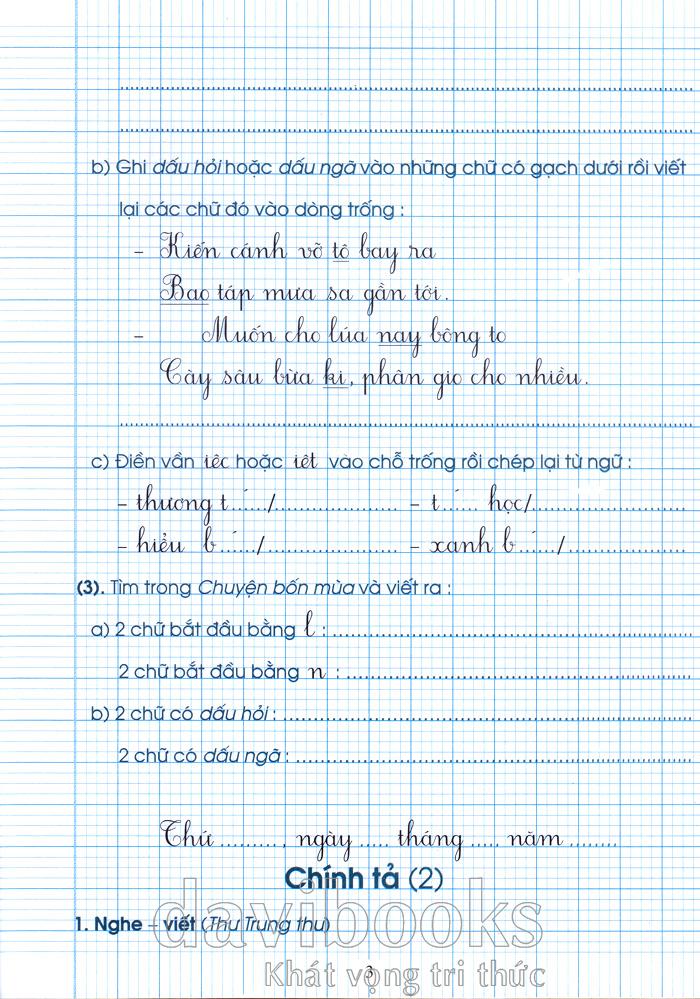 b) Ghi dấu hỏi hoặc dấu ngã vào những chữ có gạch dưới rồi viết
lại các chữ đó vào dòng trống :
– Kiến cánh vỡ tô bay ra
Bao táp mưa sa gần tới.
– Muốn cho lúa nay bông to
Cày sâu bừa ki, phân gio cho nhiều.
c) Điền vần iêc hoặc iêt vào chỗ trống rồi chép lại từ ngữ :
– thương t...../.................... – t...... học/....................
– hiểu b...../.................... – xanh b...../....................
(3). Tìm trong Chuyện bốn mùa và viết ra :
a) 2 chữ bắt đầu bằng l : ....................
2 chữ bắt đầu bằng n : ....................
b) 2 chữ có dấu hỏi : ....................
2 chữ có dấu ngã : ....................
Thứ ........., ngày ..... tháng ..... năm ........
Chính tả (2)
1. Nghe – viết (Thư Trung thu)
davibooks
3
Khát vọng tri thức